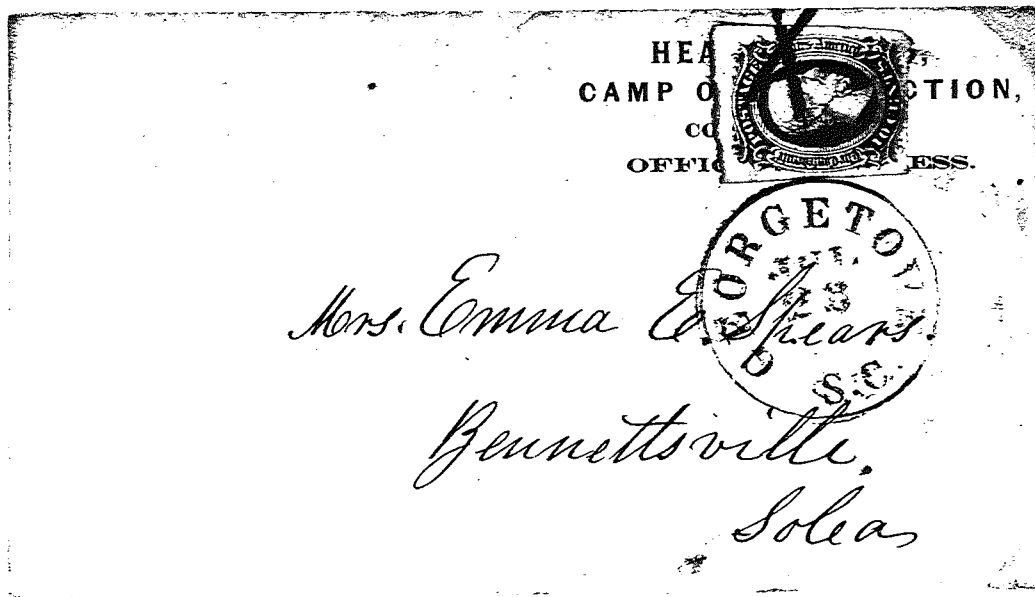 HEA
CAMP O CTION,
CO
OFFIC ESS.
POSTAGE
GEORGETOW
S.C.
Mrs. Emma E. Spears.
Bennettsville,
So Ca